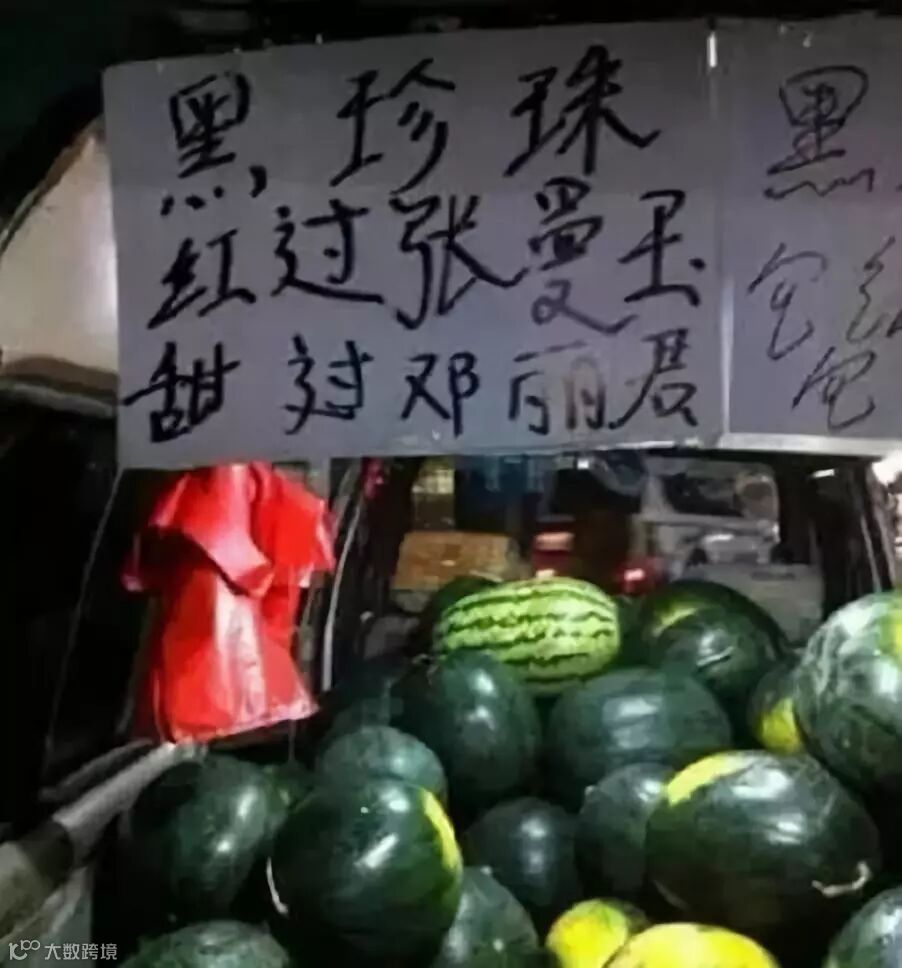 黑珍珠
红过张曼玉
甜过邓丽君
黑
包
包
大数跨境